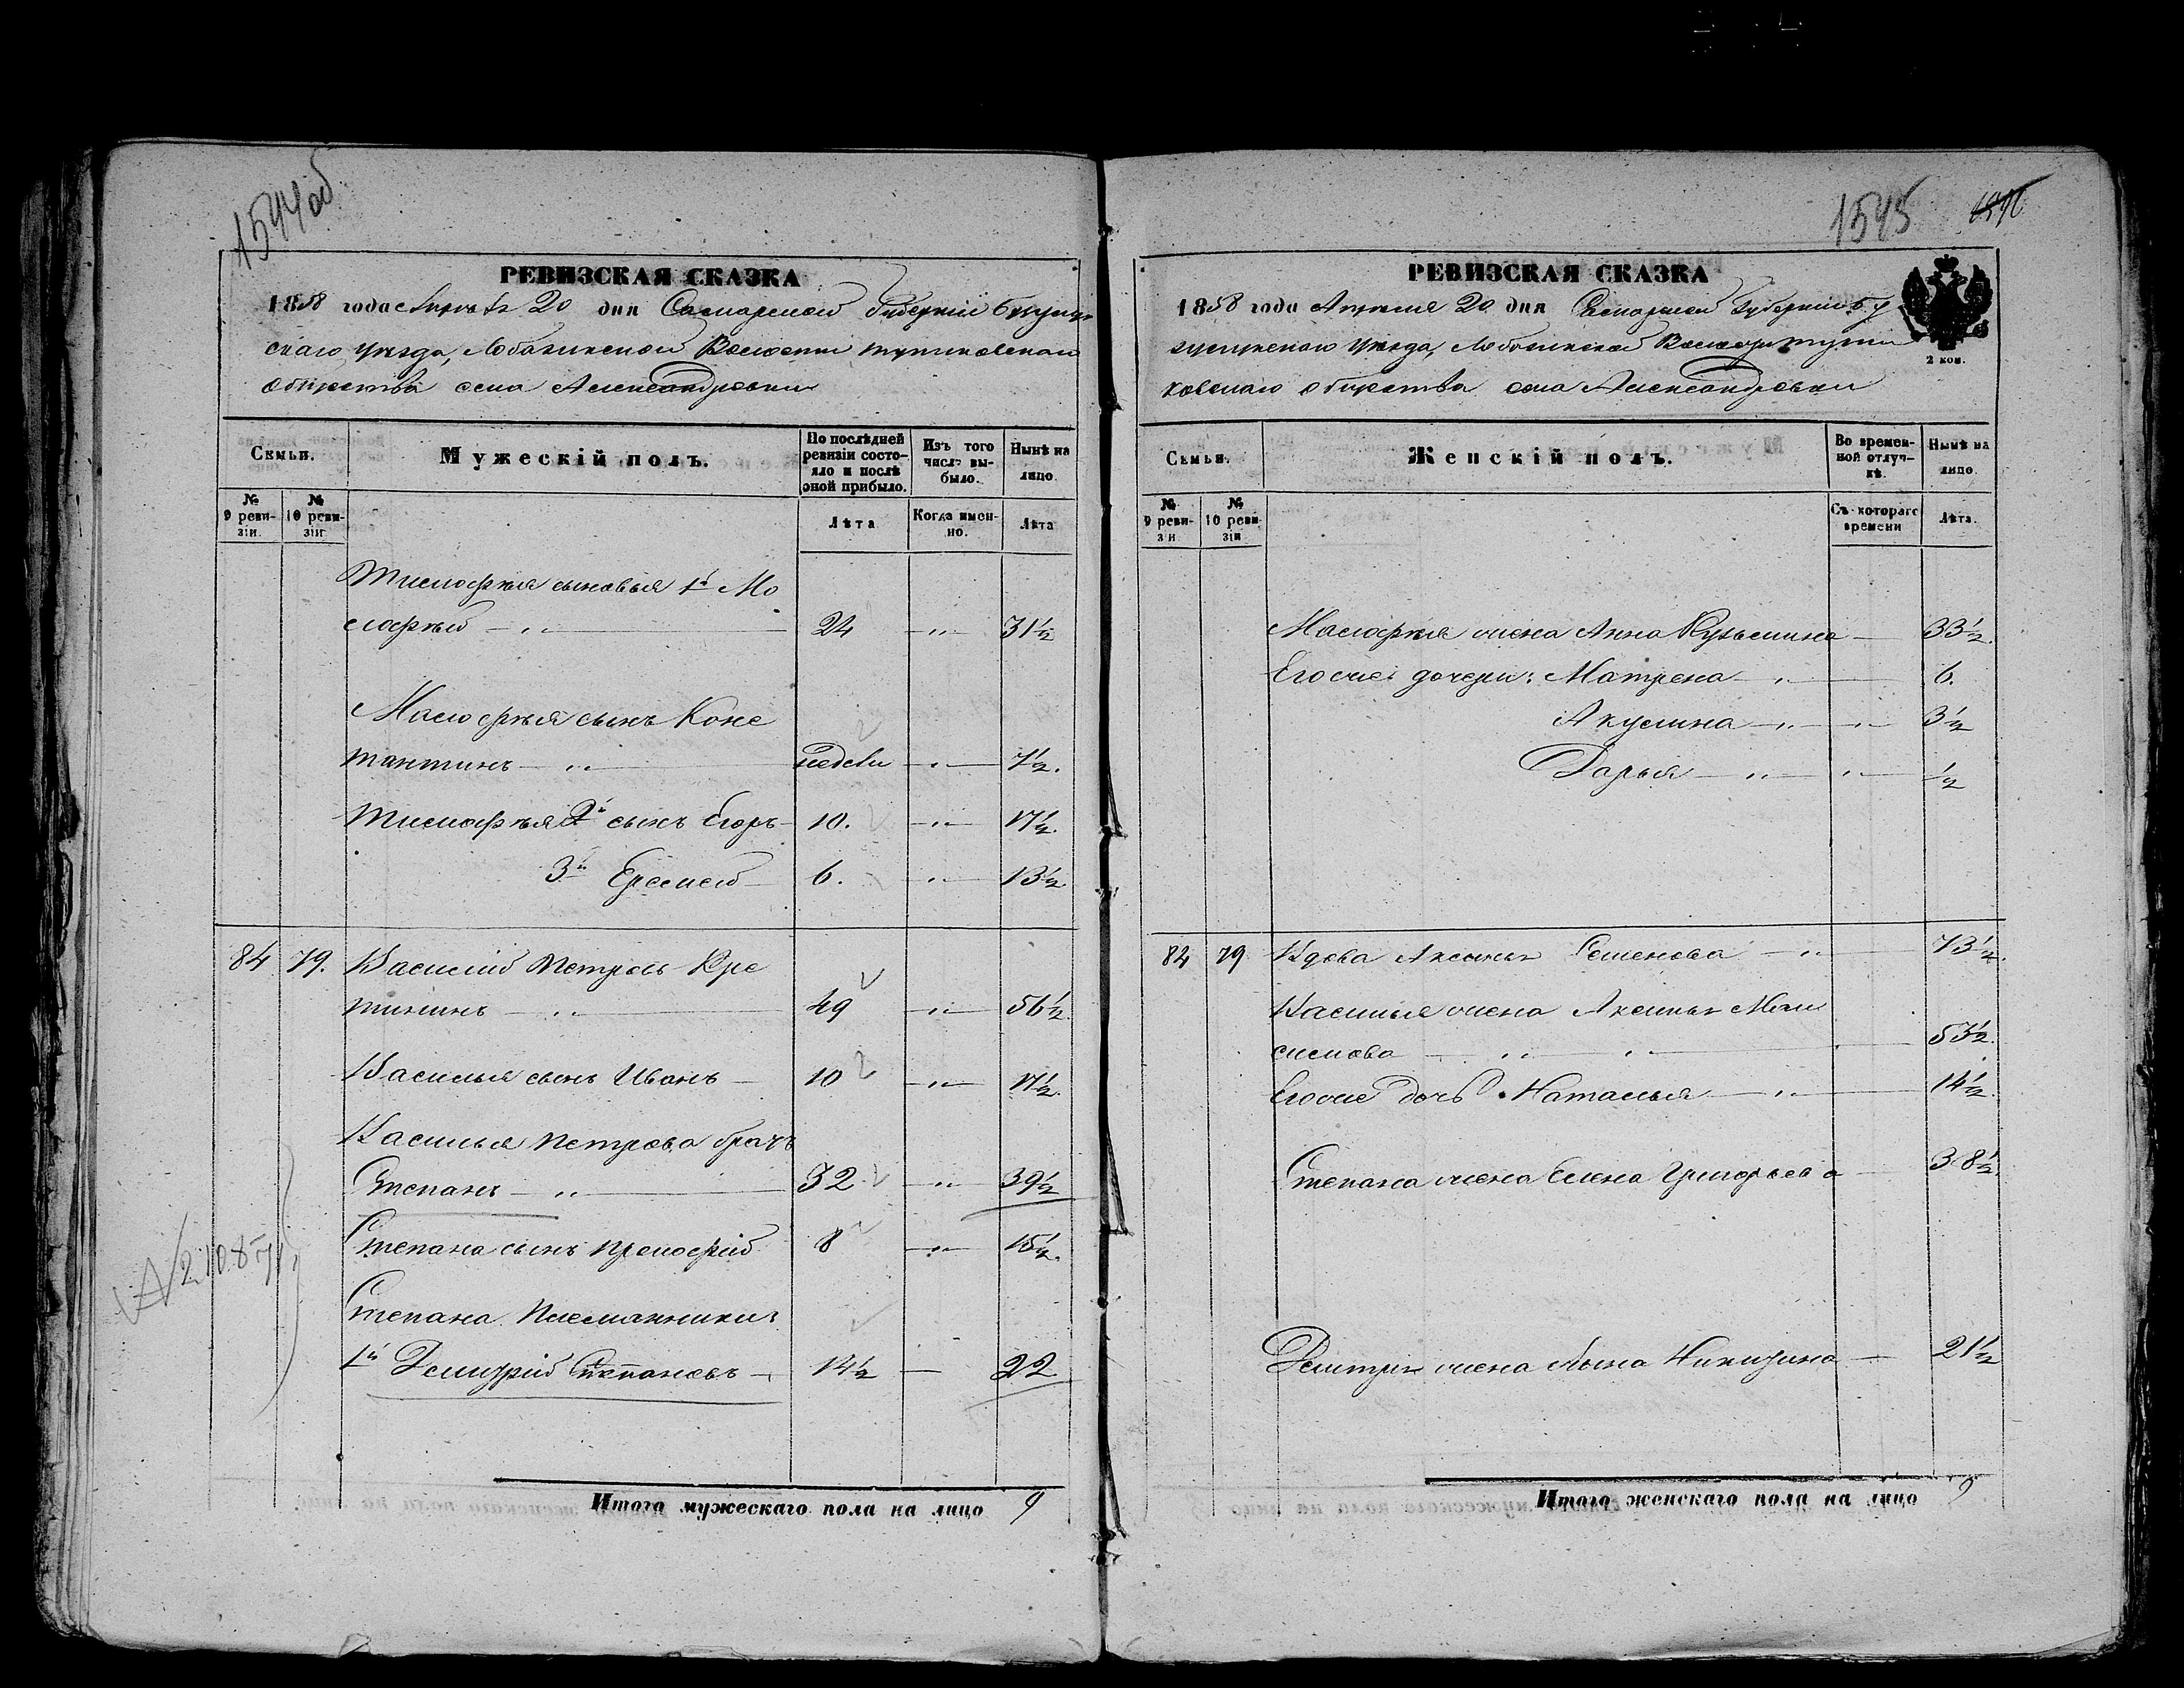 1544об
РЕВИЗСКАЯ СКАЗКА
1858 года Апреля 20 дня Самарской Губернии Бугуру
скаго уезда, Лобазинской Волости
общества села Александровки
Семьи.
Мужескій полъ.
По послѣдней ревизіи состояло и послѣ оной прибыло.
Изъ того числа выбыло.
Нынѣ на лицо.
№ 9 ревизіи.
№ 10 ревизіи
Лѣта
Когда именно.
Лѣта
Тимофея сыновья 1й Мо
кофей — „ — 24 — „ — 31½
сынъ Конс
тантинъ — „ — — „ — 7½.
Тимофея 2й сынъ Егоръ — 10. — „ — 17½.
3й Еремей — 6. — „ — 13½
84 79. Василій Петровъ Кре
тининъ — „ — 49 — „ — 56½.
Василья сынъ Иванъ — 10 — „ — 17½.
Василья Петрова братъ
Степанъ — „ — 32 — „ — 39½
Степана сынъ Прокофій 8 — „ — 15½.
Степана Племянники:
1й Демитрій Степановъ — 14½ — 22
Итого мужескаго пола на лицо 9
1545
РЕВИЗСКАЯ СКАЗКА
1858 года Апреля 20 дня Самарской Губерніи Бу
уезда, Лобазинской Волости
ковскаго общества села Александровки
2 коп.
Семьи.
Женскій полъ.
Во временной отлучкѣ.
Нынѣ на лицо
№ 9 ревизіи
№ 10 ревизіи
Съ котораго времени
Лѣта.
жена Анна Кузьмина — 33½.
Его же дочери: Матрена — „ — 6.
Акулина — „ — „ — 3½
Дарья — „ — „ — ½
84 79 Вдова Аксинья Семенова — „ — 73½.
Василья жена Аксинья Мак
симова — „ — „ — 53½.
Его же дочь Наталья — „ — 14½.
Степана жена Елена Григорьева — 38½.
Демитрія жена Анна Никитина — 21½
Итого женскаго пола на лицо 9